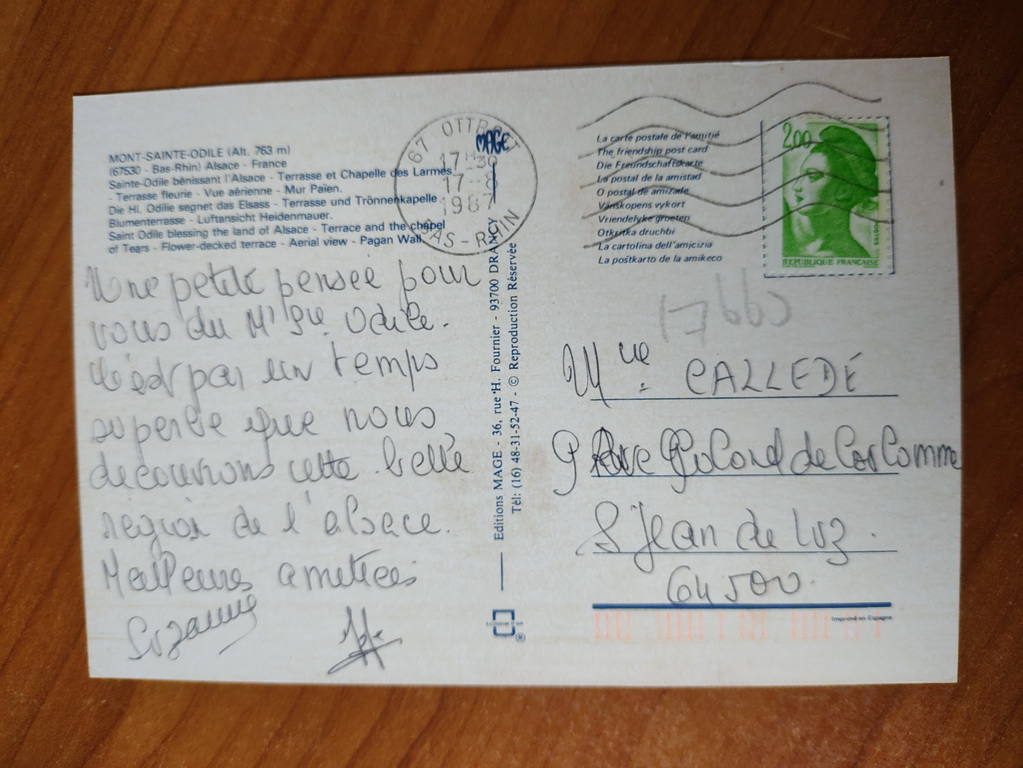 MONT-SAINTE-ODILE (Alt. 763 m)
(67530 - Bas-Rhin) Alsace - France
Sainte-Odile bénissant l'Alsace - Terrasse et Chapelle des Larmes
- Terrasse fleurie - Vue aérienne - Mur Païen.
Die Hl. Odile segnet das Elsass - Terrasse und Trönnenkapelle
Blumenterrasse - Luftansicht Heidenmauer.
Saint Odile blessing the land of Alsace - Terrace and the chapel
of Tears - Flower-decked terrace - Aerial view - Pagan Wall.
Une petite pensée pour
vous du Mt Ste Odile.
C'est par un temps
superbe que nous
découvrons cette belle
région de l'alsace.
Meilleures amitiées
Suzanne
67 OTTROTT
17H30
17 -
1987
BAS-RHIN
MAGE
Editions MAGE - 36, rue H. Fournier - 93700 DRANCY
Tél: (16) 48-31-52-47 - © Reproduction Réservée
®
La carte postale de l'amitié
The friendship post card
Die Freundschaftskarte
La postal de la amistad
O postal de amizade
Vänskopens vykort
Vriendelyke groeten
Otkritka druchbi
La cartolina dell'amicizia
La poŝtkarto de la amikeco
2,00
POSTES
REPUBLIQUE FRANÇAISE
17660
Mme CALLEDE
9 Rue de
St Jean de Luz.
64500.
Imprimé en Espagne